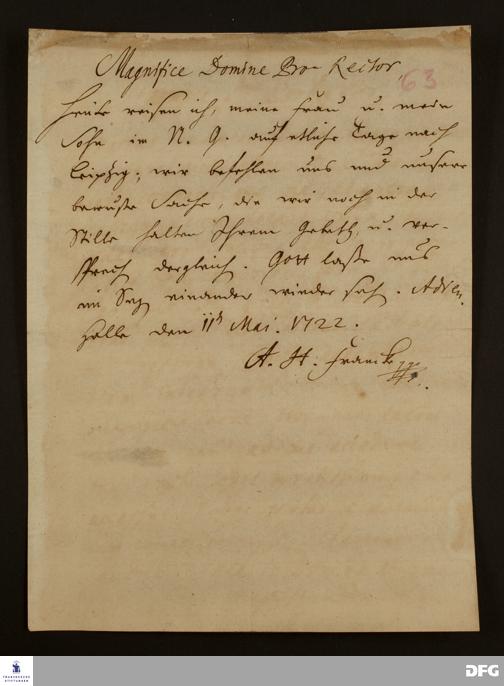 Magnifice Domine Pro-Rector,
63
Heute reisen ich, meine Frau u. mein
Sohn im N. G. auf etliche Tage nach
Leipzig; wir befehlen uns und unsere
bewuste Sache, die wir noch in der
Stille halten Ihrem Gebeth, u. ver-
sprech dergleich. Gott lasse uns
im Seg einander wieder seh. Adieu.
Halle den 11t Mai. 1722.
A. H. Francke
FRANCKESCHE
STIFTUNGEN
DFG